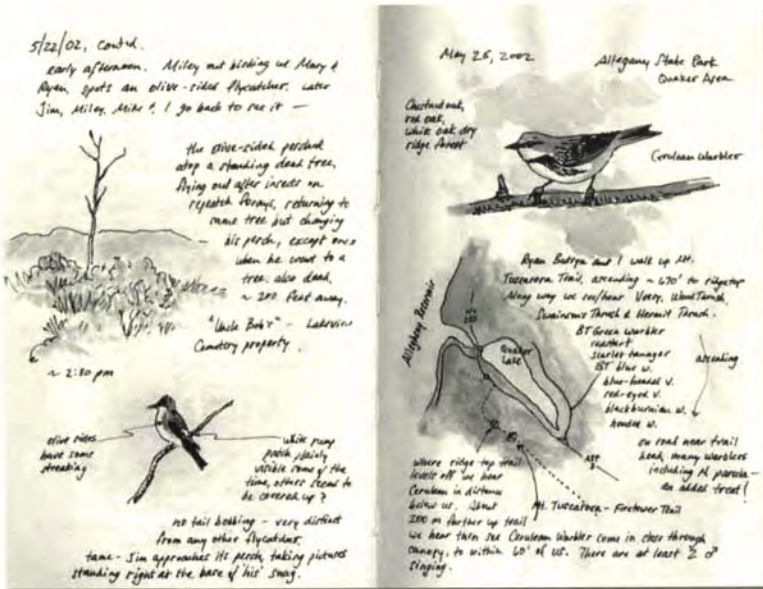 5/22/02, contd.
early afternoon. Miley out birding w/ Mary &
Ryan, spots an olive-sided flycatcher. Later
Jim, Miley, Mike & I go back to see it —
the olive-sided perched
atop a standing dead tree,
flying out after insects on
repeated forays, returning to
same tree but changing
his perch, except once
when he went to a
tree, also dead,
~ 200 feet away.
"Uncle Bob's" - Lakeview
Cemetery property.
~ 2:30 pm
olive sides
have some
streaking
white rump
patch plainly
visible some of the
time, others seem to
be covered up?
no tail bobbing - very distinct
from any other flycatcher.
tame - Jim approaches its perch, taking pictures
standing right at the base of his snag.
May 26, 2002
Allegany State Park
Quaker Area
Chestnut oak,
red oak,
white oak dry
ridge forest
Cerulean Warbler
Ryan and I walk up Mt.
Tuscarora Trail, ascending ~ 670' to ridgetop
Along way we see/hear Veery, Wood Thrush,
Swainson's Thrush & Hermit Thrush.
BT Green Warbler
redstart
scarlet tanager
BT blue w.
blue-headed v.
red-eyed v.
blackburnian w.
hooded w.
ascending
Allegheny Reservoir
Quaker
Lake
on road near trail
head, many warblers
including N. parula -
an added treat!
where ridge top trail
levels off we hear
Cerulean in distance
below us. About
200 m further up trail
Mt. Tuscarora - Firetower Trail
we hear then see Cerulean Warbler come in close through
canopy, to within 60' of us. There are at least 2 ♂
singing.